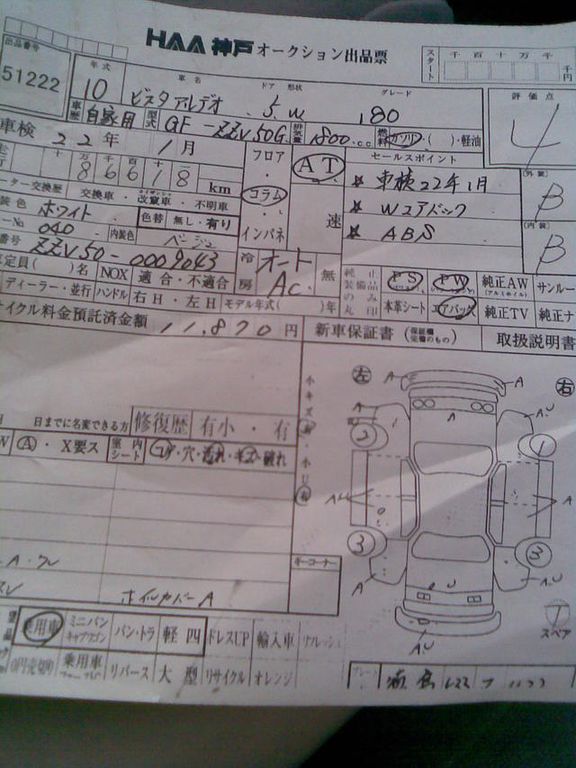 HAA神戸 オークション出品票
スタート 千 百 十 万 千 千円
出品番号
51222
年式 車名 ドア 形状 グレード 評価点
10 ビスタアルデオ 5.W 180 4
車歴 自家用 型式 GF-ZZV50G 排気量 1800.cc 燃料 ガソリン・( )・軽油
車検 22年 1月 フロア・ AT セールスポイント
十 万 千
8 6 6 1 8 km
コラム ★ 車検22年1月 (外装) B
ーター交換歴 交換車・改竄車・不明車
装色 ホワイト 色替 無し・有り 速 ★ Wエアバック
040 内装色 ベージュ インパネ ★ ABS (内装) B
番号 ZZV50-0009043 冷房 オート AC 無
定員( )名 NOX 適合・不適合
純正装備品のみ丸印 PS PW 純正AW サンルー
ディーラー・並行 ハンドル 右H・左H モデル年式( )年 本革シート エアバック 純正TV 純正ナ
イクル料金預託済金額 11,870円 新車保証書 取扱説明書
小キズ 左 右
日までに名変できる方 修復歴 有小・有
A・X要ス 室内シート コゲ・穴・汚れ・キズ・破れ
小U
A A A A AU
2 1
AU A
3 3
A U AU
AU
キーコーナー
ホイルカバーA
T
スペア
乗用車 ミニバン キャブワゴン バン・トラ 軽四 ドレスUP 輸入車 リフレッシュ
0円売切 乗用車 リバース 大型 リサイクル オレンジ